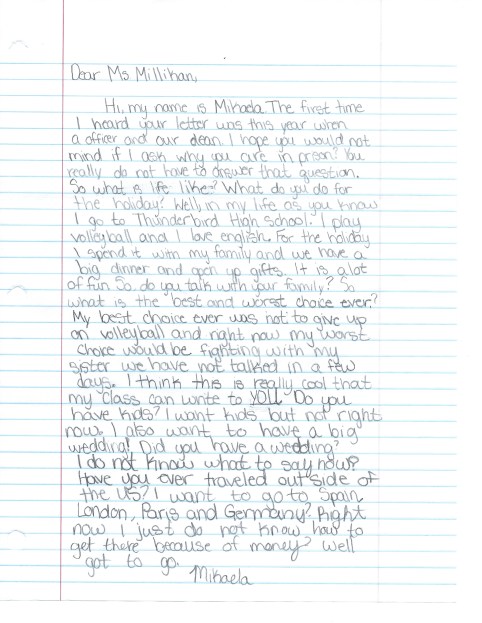 Dear Ms Millihan,
Hi, my name is Mikaela. The first time
I heard your letter was this year when
a officer and our dean. I hope you would not
mind if I ask why you are in prison? You
really do not have to answer that question.
So what is life like? What do you do for
the holiday? Well, in my life as you know
I go to Thunderbird High school. I play
volleyball and I love english. For the holiday
I spend it with my family and we have a
big dinner and open up gifts. It is a lot
of fun. So, do you talk with your family? So
what is the best and worst choice ever?
My best choice ever was not to give up
on volleyball and right now my worst
choice would be fighting with my
sister we have not talked in a few
days. I think this is really cool that
my class can write to you. Do you
have kids? I want kids but not right
now. I also want to have a big
wedding! Did you have a wedding?
I do not know what to say now?
Have you ever traveled out side of
the US? I want to go to Spain,
London, Paris and Germany? Right
now I just do not know how to
get there because of money? Well
got to go.
Mikaela